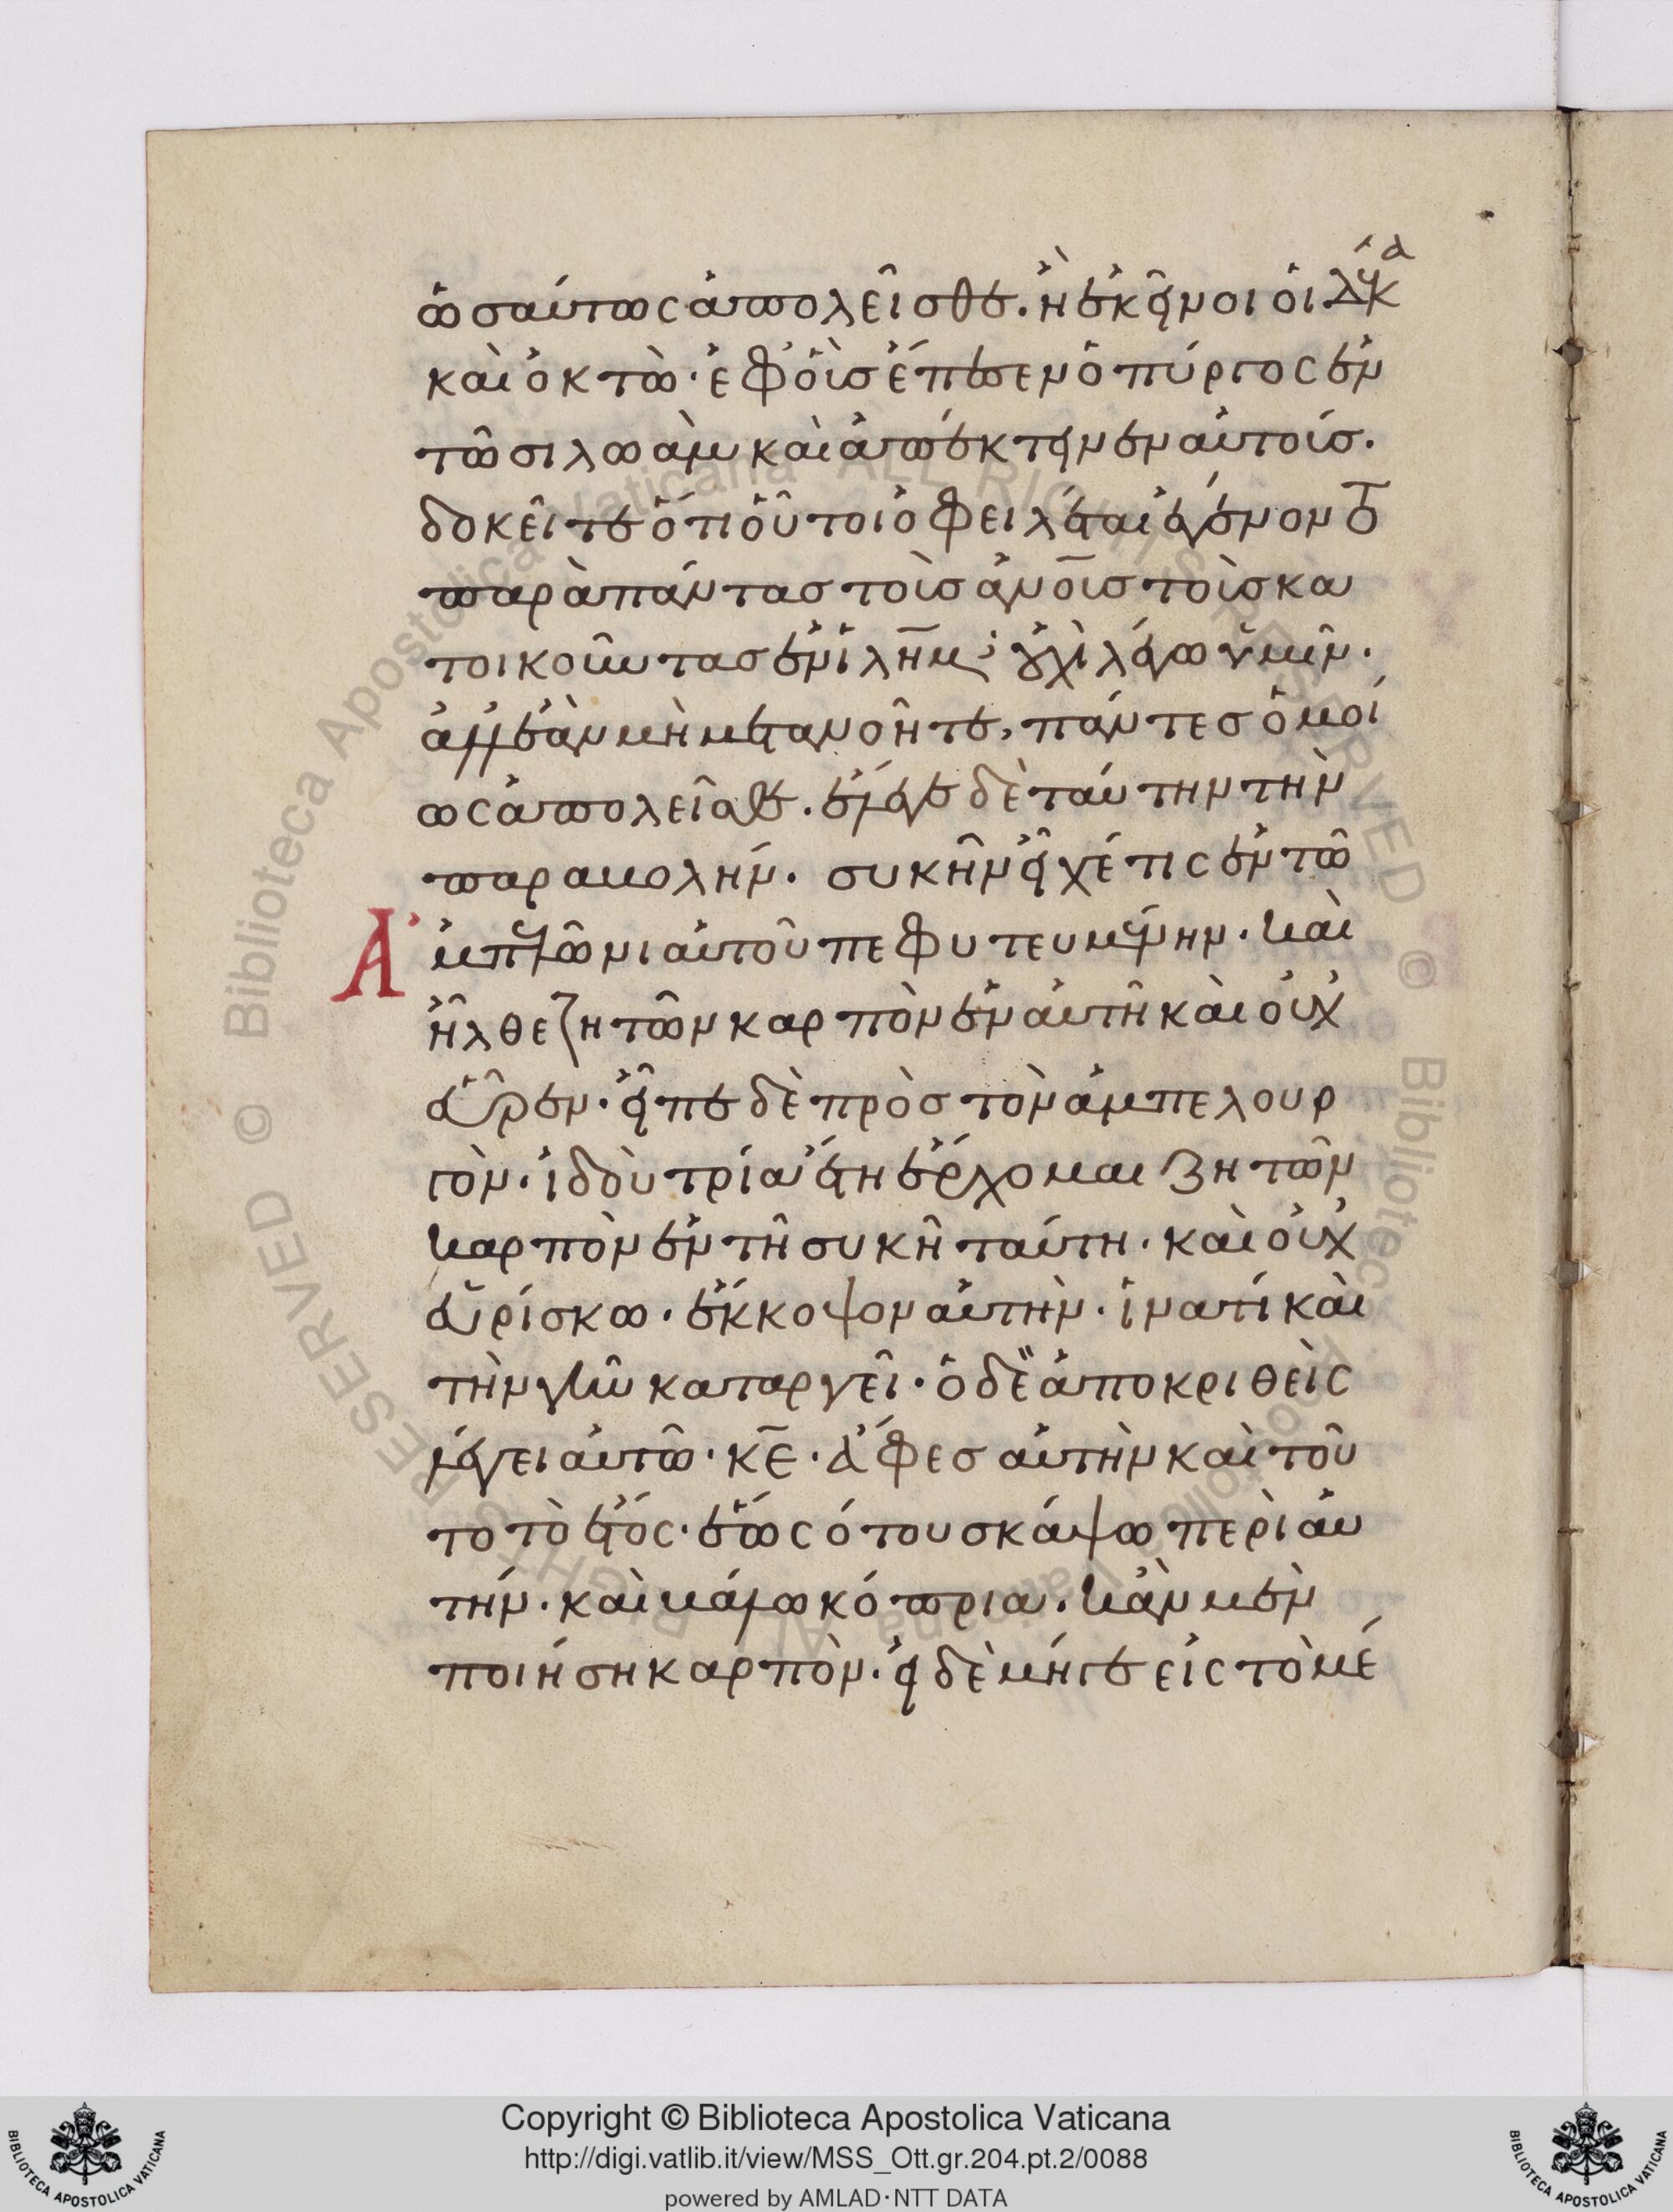 ὡσαύτως ἀπολεῖσθε. ἢ ἐκεῖνοι οἱ δέκα
καὶ ὀκτὼ· ἐφ' οὓς ἔπεσεν ὁ πύργος ἐν
τῶ σιλωὰμ καὶ ἀπέκτεινεν αὐτούς.
δοκεῖτε ὅτι οὗτοι ὀφειλέται ἐγένοντο
παρὰ πάντας τοὺς ἀν̅ους τοὺς κα
τοικοῦντας ἐν ἱλη̅μ; οὐχὶ λέγω ὑμῖν.
ἀλλ' ἐὰν μὴ μετανοῆτε, πάντες ὁμοί
ως ἀπολεῖσθε. ἔλεγε δὲ ταύτην τὴν
παραβολήν. συκῆν εἶχέ τις ἐν τῶ
Ἀμπελῶνι αὐτοῦ πεφυτευμένην. καὶ
ἦλθε ζητῶν καρπὸν ἐν αὐτῆ καὶ οὐχ
εὗρεν. εἶπε δὲ πρὸς τὸν ἀμπελουρ
γὸν. ἰδοὺ τρία ἔτη ἔρχομαι ζητῶν
καρπὸν ἐν τῆ συκῆ ταύτη. καὶ οὐχ
εὑρίσκω. ἔκκοψον αὐτὴν. ἱνατί καὶ
τὴν γῆν καταργεῖ. ὁ δὲ ἀποκριθεὶς
λέγει αὐτῶ. κ̅ε. ἄφες αὐτὴν καὶ τοῦ
το τὸ ἔτος. ἕως ὅτου σκάψω περὶ αὐ
τήν. καὶ βάλω κόπρια. κἂν μὲν
ποιήση καρπὸν. εἰ δὲ μήγε εἰς τὸ μέ
Copyright © Biblioteca Apostolica Vaticana
http://digi.vatlib.it/view/MSS_Ott.gr.204.pt.2/0088
powered by AMLAD·NTT DATA